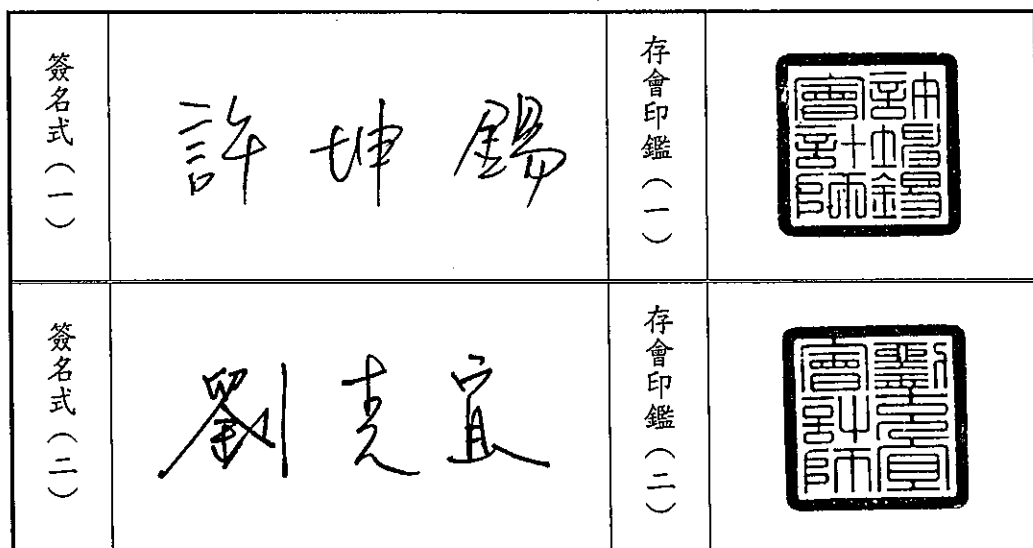 簽名式（一）
許坤錫
存會印鑑（一）
許坤錫會計師
簽名式（二）
劉克宜
存會印鑑（二）
劉克宜會計師